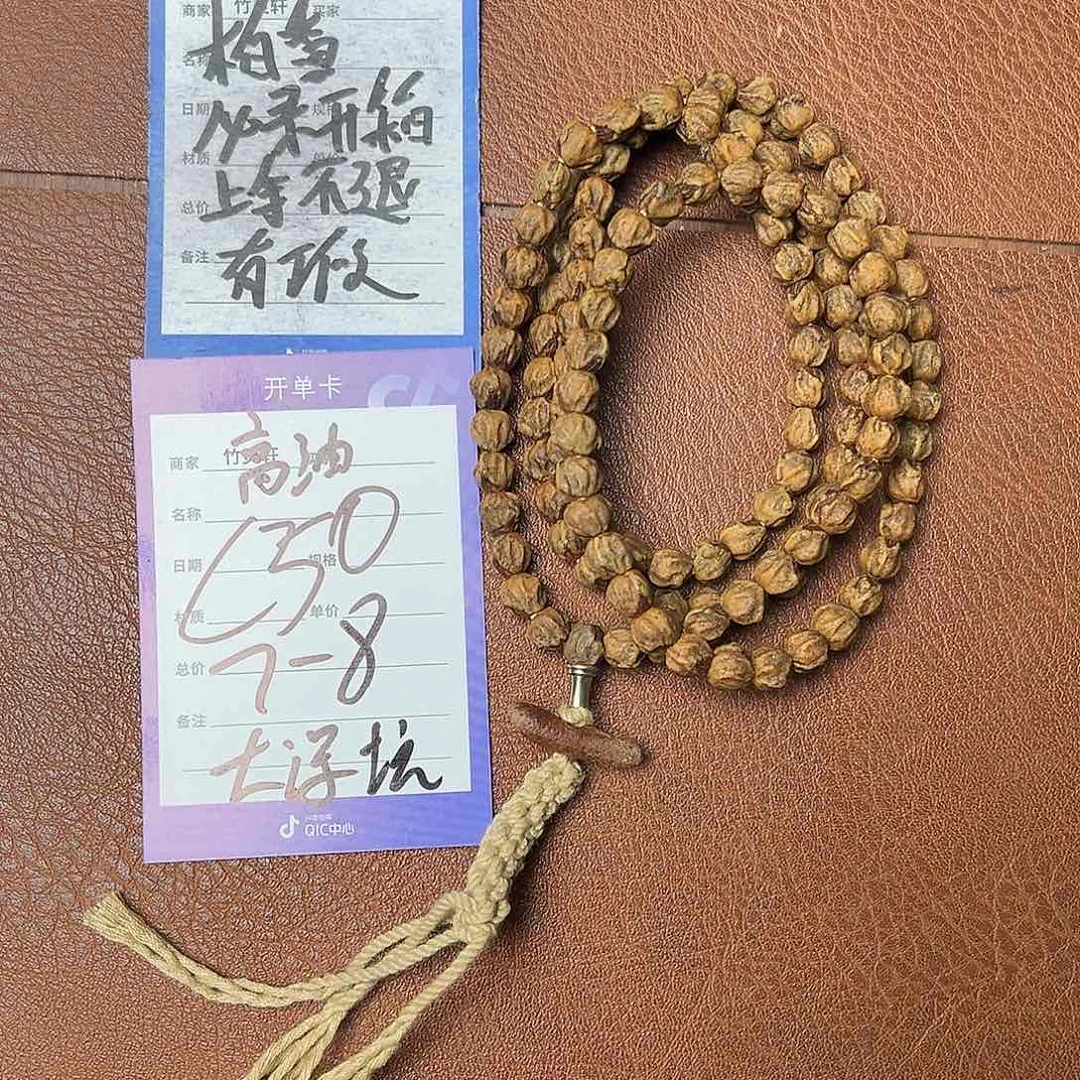 商家 竹 轩 买家
名称 柏
日期 必录开箱
材质
总价 上手不退
备注 有瑕
开单卡
商家 竹 轩 高油
名称
日期 规格 50
材质 单价
总价 7-8
备注
大浮坑
抖音电商
QIC中心